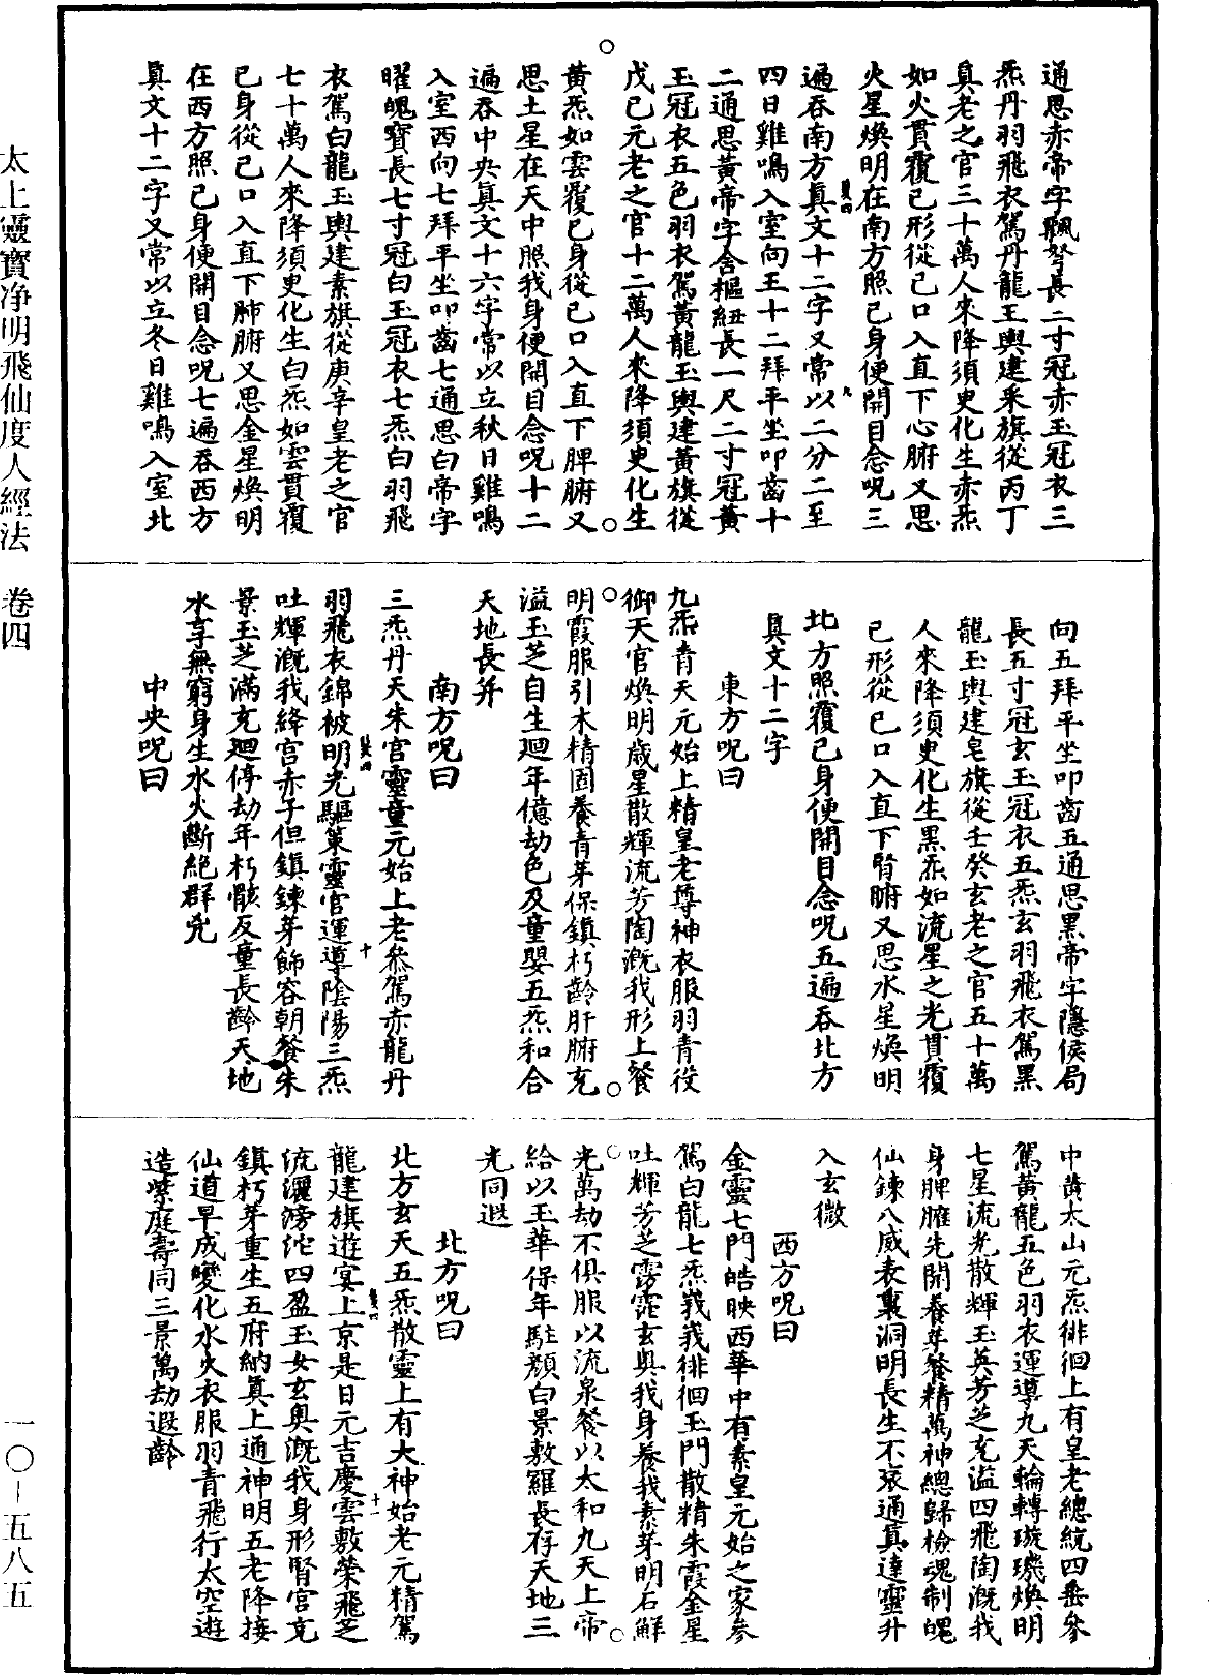 通思赤帝字飄弩長二寸冠赤玉冠衣三
炁丹羽飛衣駕丹龍玉輿建朱旗從丙丁
真老之官三十萬人來降須臾化生赤炁
如火貫覆己形從己口入直下心腑又思
火星煥明在南方照己身便開目念呪三
遍吞南方真文十二字又常以二分二至
四日雞鳴入室向王十二拜平坐叩齒十
二通思黃帝字含樞紐長一尺二寸冠黃
玉冠衣五色羽衣駕黃龍玉輿建黃旗從
戊己元老之官十二萬人來降須臾化生
黃炁如雲覆己身從己口入直下脾腑又
思土星在天中照我身便開目念呪十二
遍吞中央真文十六字常以立秋日雞鳴
入室西向七拜平坐叩齒七通思白帝字
曜魄寶長七寸冠白玉冠衣七炁白羽飛
衣駕白龍玉輿建素旗從庚辛皇老之官
七十萬人來降須臾化生白炁如雲貫覆
己身從己口入直下肺腑又思金星煥明
在西方照己身便開目念呪七遍吞西方
真文十二字又常以立冬日雞鳴入室北
向五拜平坐叩齒五通思黑帝字隱侯局
長五寸冠玄玉冠衣五炁玄羽飛衣駕黑
龍玉輿建皂旗從壬癸玄老之官五十萬
人來降須臾化生黑炁如流星之光貫覆
己形從己口入直下腎腑又思水星煥明
北方照覆己身便開目念呪五遍吞北方
真文十二字
東方呪曰
九炁青天元始上精皇老尊神衣服羽青役
御天官煥明歲星散輝流芳陶溉我形上餐
明霞服引木精固養青芽保鎮朽齡肝腑充
溢玉芝自生廻年億劫色及童嬰五炁和合
天地長并
南方呪曰
三炁丹天朱宮靈童元始上老叅駕赤龍丹
羽飛衣錦被明光驅策靈官運導陰陽三炁
吐輝溉我絳宮赤子但鎮鍊芽飾容朝餐朱
景玉芝滿充廻停劫年朽骸反童長齡天地
永享無窮身生水火斷絕群兇
中央呪曰
中黃太山元炁徘徊上有皇老總統四岳叅
駕黃龍五色羽衣運導九天輪轉璇璣煥明
七星流光散輝玉英芳芝充溢四飛陶溉我
身脾腑先開養芽餐精萬神總歸檢魂制魄
仙鍊八威表裏洞明長生不衰通真達靈升
入玄微
西方呪曰
金靈七門皓映西華中有素皇元始之家叅
駕白龍七炁峩峩徘徊玉門散精朱霞金星
吐輝芳芝雱霈玄輿我身養我素芽明石鮮
光萬劫不俱服以流泉餐以太和九天上帝
給以玉華保年駐顏白景敷羅長存天地三
光同遐
北方呪曰
北方玄天五炁散靈上有大神始老元精駕
龍建旗遊宴上京是日元吉慶雲敷榮飛芝
流灑滂沱四盈玉女玄輿溉我身形腎宮充
鎮朽芽重生五府納真上通神明五老降接
仙道早成變化水火衣服羽青飛行太空遊
造紫庭壽同三景萬劫遐齡
太上靈寶净明飛仙度人經法　卷四
一〇—五八五